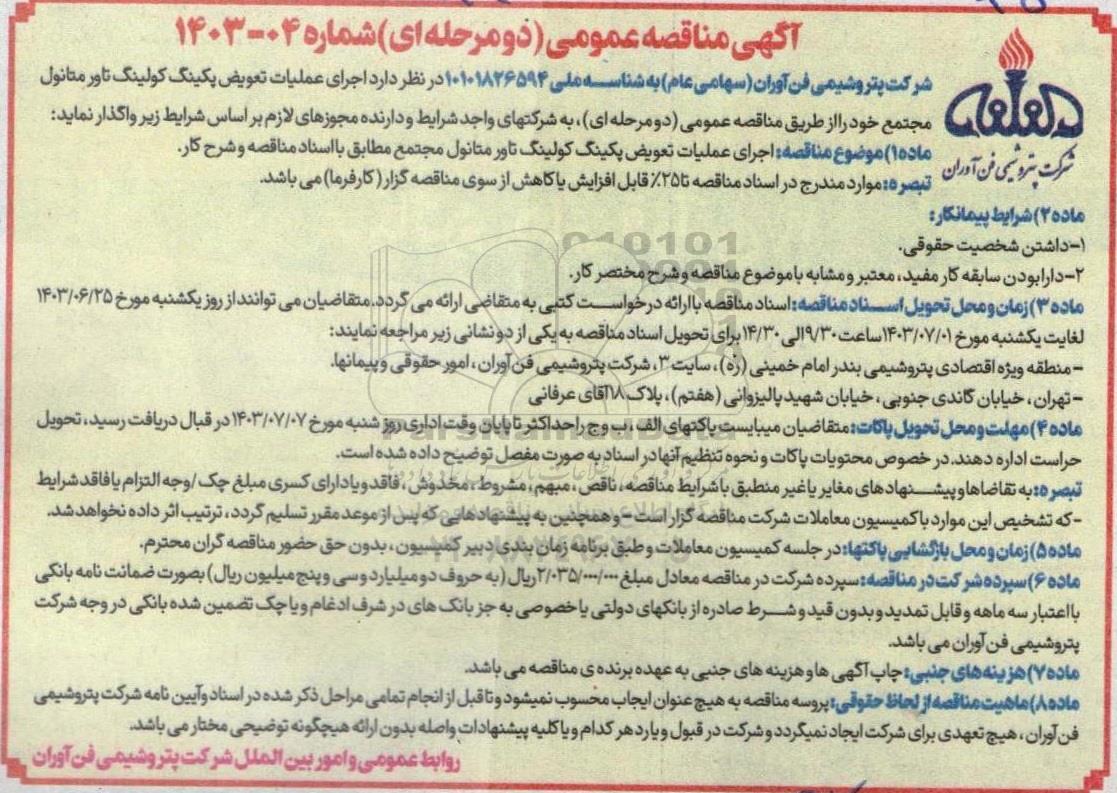 آگهی مناقصه عمومی (دو مرحله ای) شماره ۰۴-۱۴۰۳
شرکت پتروشیمی فن آوران (سهامی عام) به شناسه ملی ۱۰۱۰۱۸۲۶۵۹۴ در نظر دارد اجرای عملیات تعویض پکینگ کولینگ تاور متانول
مجتمع خود را از طریق مناقصه عمومی (دو مرحله ای)، به شرکتهای واجد شرایط و دارنده مجوزهای لازم بر اساس شرایط زیر واگذار نماید:
ماده۱) موضوع مناقصه: اجرای عملیات تعویض پکینگ کولینگ تاور متانول مجتمع مطابق با اسناد مناقصه و شرح کار.
شرکت پتروشیمی فن آوران
تبصره: موارد مندرج در اسناد مناقصه تا ۲۵٪ قابل افزایش یا کاهش از سوی مناقصه گزار (کارفرما) می باشد.
ماده۲) شرایط پیمانکار:
۱-داشتن شخصیت حقوقی.
۲-دارا بودن سابقه کار مفید، معتبر و مشابه با موضوع مناقصه و شرح مختصر کار.
ماده۳) زمان و محل تحویل اسناد مناقصه: اسناد مناقصه با ارائه درخواست کتبی به متقاضی ارائه می گردد. متقاضیان می توانند از روز یکشنبه مورخ ۱۴۰۳/۰۶/۲۵
لغایت یکشنبه مورخ ۱۴۰۳/۰۷/۰۱ ساعت ۹/۳۰ الی ۱۴/۳۰ برای تحویل اسناد مناقصه به یکی از دو نشانی زیر مراجعه نمایند:
- منطقه ویژه اقتصادی پتروشیمی بندر امام خمینی (ره)، سایت ۳، شرکت پتروشیمی فن آوران، امور حقوقی و پیمانها.
- تهران، خیابان گاندی جنوبی، خیابان شهید پالیزوانی (هفتم)، پلاک ۱۸ آقای عرفانی
ماده۴) مهلت و محل تحویل پاکات: متقاضیان میبایست پاکتهای الف، ب و ج را حداکثر تا پایان وقت اداری روز شنبه مورخ ۱۴۰۳/۰۷/۰۷ در قبال دریافت رسید، تحویل
حراست اداره دهند. در خصوص محتویات پاکات و نحوه تنظیم آنها در اسناد به صورت مفصل توضیح داده شده است.
تبصره: به تقاضاها و پیشنهادهای مغایر یا غیر منطبق با شرایط مناقصه، ناقص، مبهم، مشروط، مخدوش، فاقد و یا دارای کسری مبلغ چک/وجه التزام یا فاقد شرایط
-که تشخیص این موارد با کمیسیون معاملات شرکت مناقصه گزار است - و همچنین به پیشنهادهایی که پس از موعد مقرر تسلیم گردد، ترتیب اثر داده نخواهد شد.
ماده۵) زمان و محل بازگشایی پاکتها: در جلسه کمیسیون معاملات و طبق برنامه زمان بندی دبیر کمیسیون، بدون حق حضور مناقصه گران محترم.
ماده۶) سپرده شرکت در مناقصه: سپرده شرکت در مناقصه معادل مبلغ ۲/۰۳۵/۰۰۰/۰۰۰ ریال (به حروف دو میلیارد و سی و پنج میلیون ریال) بصورت ضمانت نامه بانکی
با اعتبار سه ماهه و قابل تمدید و بدون قید و شرط صادره از بانکهای دولتی یا خصوصی به جز بانک های در شرف ادغام و یا چک تضمین شده بانکی در وجه شرکت
پتروشیمی فن آوران می باشد.
ماده۷) هزینه های جنبی: چاپ آگهی ها و هزینه های جنبی به عهده برنده ی مناقصه می باشد.
ماده۸) ماهیت مناقصه از لحاظ حقوقی: پروسه مناقصه به هیچ عنوان ایجاب محسوب نمیشود و تا قبل از انجام تمامی مراحل ذکر شده در اسناد و آیین نامه شرکت پتروشیمی
فن آوران، هیچ تعهدی برای شرکت ایجاد نمیگردد و شرکت در قبول و یا رد هر کدام و یا کلیه پیشنهادات واصله بدون ارائه هیچگونه توضیحی مختار می باشد.
روابط عمومی و امور بین الملل شرکت پتروشیمی فن آوران